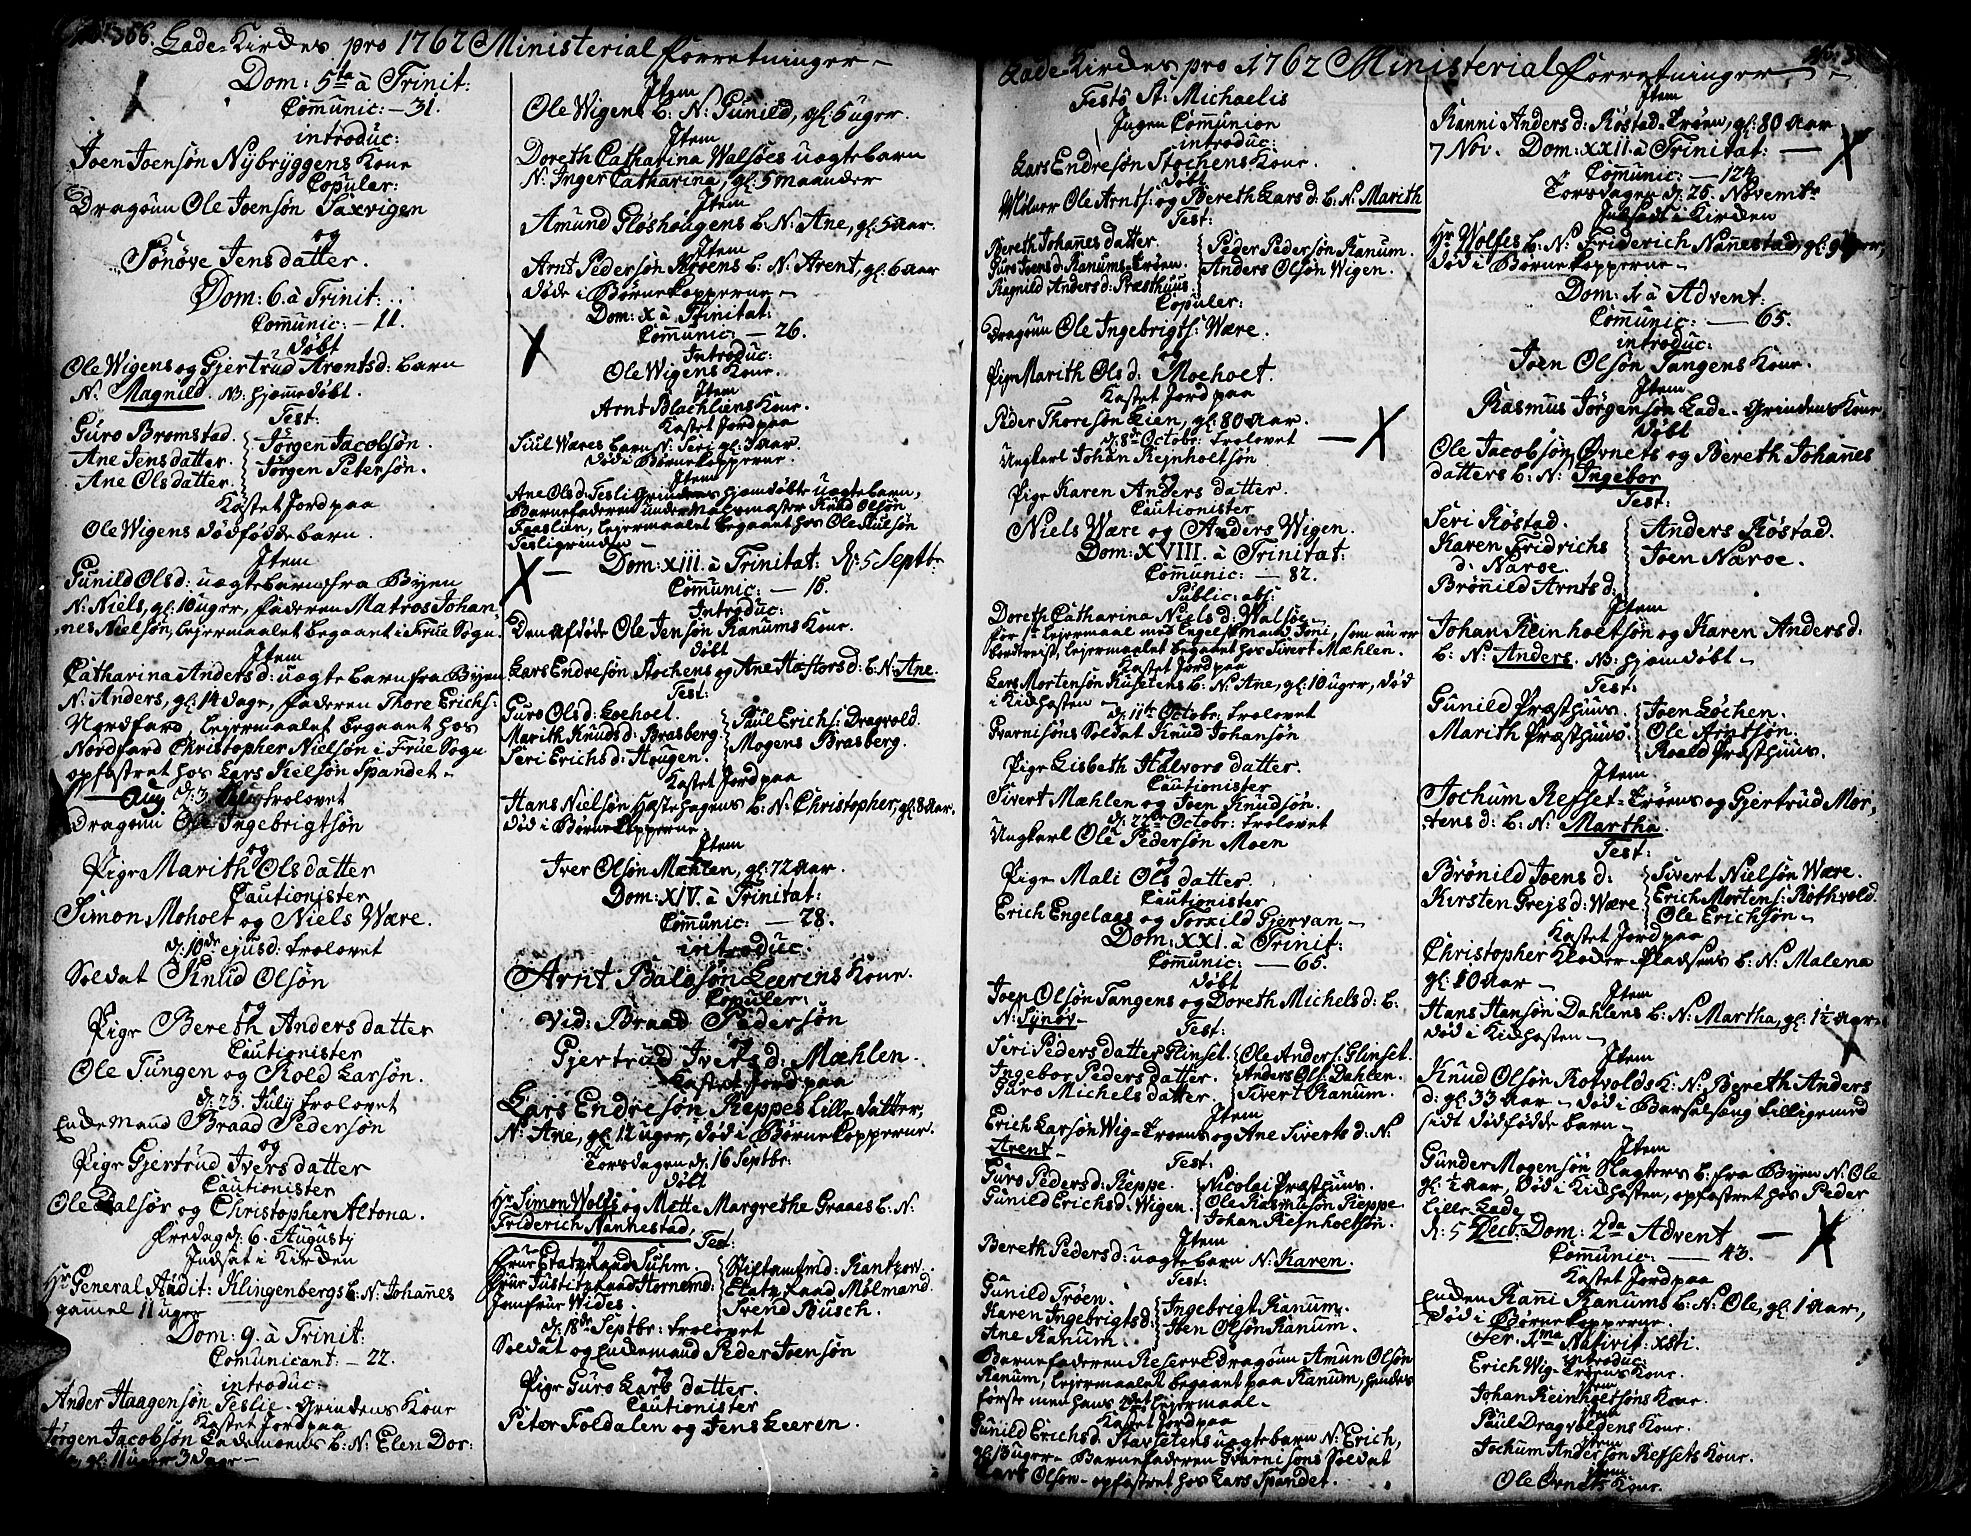 366. Lade-Kirckes pro 1762 Ministerial forretninger
Dom: 5ta à Trinit:
Comunic: — 31.
introduc:
Joen Joensøn Nybryggens Kone
Copuler:
Dragoun Ole Joensøn Saxvigen
og
Sønøve Jensdatter.
Dom: 6. à Trinit:
Comunic: — 11.
døbt
Ole Wigens og Gjertrud Arentsd: barn
N: Magnild. NB. hjemmedøbt.
Test:
Guro Bromstad.
Ane Jensdatter.
Ane Olsdatter.
Jørgen Jacobsøn.
Jørgen Petersøn.
Kastet Jord paa
Ole Wigens dødfødde barn.
Item
Gunild Olsd: uægte barn fra Byen
N: Niels, gl: 10 uger, faderen Matros Johan-
nes Nielsøn, lejermaalet begaaet i Frue Sogn
Item
Catharina Andersd: uægte barn fra Byen
N: Anders, gl: 14 dage, faderen Thore Erichs:
Nordfard, lejermaalet begaaet hos
Nordfard Christopher Nielsøn i Frue Sogn
opfostret hos Lars Kielsøn Spandet
Aug d: 3 trolovet
Dragoun Ole Ingebrigtsøn
og
Pige Marith Olsdatter
Cautionister
Simon Moholt og Niels Være.
d: 10de ejusd: trolovet
Soldat Knud Olsøn
og
Pige Bereth Andersdatter
Cautionister
Ole Tungen og Rold Larsøn.
d: 23. July trolovet
Enckemand Braad Pedersøn
og
Pige Gjertrud Iversdatter
Cautionister
Ole Dalsør og Christopher Altona.
Fredag d: 6. Augusty
Indsat i Kircken
Hr General Audit: Klingenbergs b: N: Johannes
gamel 11 uger
Dom: 9. à Trinit:
Comunicant: — 22.
introduc
Ander Haagensøn Teslie-Grindens Kone
Kastet Jord paa
Jørgen Jacobsøn Lademoens b: N: Elen Dor:
gl: 11 uger 3 dage
Item
Ole Wigens b: N: Gunild, gl: 5 uger.
Item
Doreth Catharina Walsøes uægte barn
N: Inger Catharina, gl: 5 maaneder
Item
Amund Gløshougens b: N: Ane, gl: 5 aar.
Item
Arnt Pedersøn Korens b: N: Arent, gl: 6 aar
døde i Børnekopperne
Dom: X à Trinitat:
Comunic: — 26.
Introduc:
Ole Wigens Kone.
Item
Arnt Blachliens Kone.
Kastet Jord paa
Siul Wæres barn N: Seri gl: 3 aar.
død i Børnekopperne.
Item
Ane Olsd: Tesligrindens hjemdøbte uægte barn,
Barnefaderen undermalermester Knud Olsøn
Faaslien, lejermaalet begaaet hos Ole Rulsøn
Tesligrinden
Dom: XIII. à Trinitat: d: 5 Septbr.
Comunic: — 15.
Introduc:
Den afdøde Ole Jensøn Ranums Kone.
døbt
Lars Endresøn Stochens og Ane Hæftorsd: b: N: Ane.
Test:
Guro Olsd: Loeholt.
Marith Knudsd: Brasberg
Seri Erichsd: Hougen.
Paul Erichs: Dragvold.
Mogens Brasberg.
Kastet Jord paa
Hans Nielsøn Hastehagens b: N: Christopher, gl: 8 aar.
død i Børnekopperne.
Item
Iver Olsøn Mæhlen, gl: 72 aar.
Dom: XIV. à Trinitat:
Comunic: — 28.
introduc.
Arnt Balssøn Leerens Kone.
Copuler:
Vid: Braad Pedersøn
og
Gjertrud Iversd: Mæhlen.
Kastet Jord paa
Lars Endresøn Reppes lille datter,
N: Ane, gl: 12 uger, død i Børnekopperne.
Torsdagen d: 16 Septbr:
Døbt
Hr Simon Wolfs og Mette Margrethe Graaes b: N:
Friderich Nannestad,
Test:
Frue Etatzraad Suhm.
Frue Justitzraad Hornemd:
Jomfrue Wides.
Stiftamtmd: Rantzow.
Etatz Raad Mølmand.
Svend Busch.
d: 18de Septbr: trolovet
Soldat og Enckemand Peder Joensøn
og
Pige Guro Larsdatter.
Cautionister
Peter Foldalen og Jens Leeren.
Lade-Kirckes pro 1762 Ministerial forretninger
Festo St: Michaelis
Ingen Communion
introduc:
Lars Endresøn Stochens Kone.
døbt
Møller Ole Arnts: og Bereth Larsd: b: N: Marith
Test:
Bereth Johannesdatter.
Guro Joensd: Ranums-trøen.
Ragnild Andersd: Præsthuus.
Peder Pedersøn Ranum.
Anders Olsøn Wigen.
Copuler:
Dragoun Ole Ingebrigts: Være.
og
Pige Marith Olsd: Moeholt.
Kastet Jord paa
Peder Thoresøn Lien, gl: 80 aar.
d: 8de Octobr: trolovet
Ungkarl Johan Rejnholtsøn
og
Pige Karen Andersdatter.
Cautionister
Niels Være og Anders Wigen.
Dom: XVIII. à Trinitat.
Comunic: — 82.
Public: abs:
Doreth Catharina Nielsd: Walsøe
for 1te lejermaal med Engelsmand Joni, som nu er
bortreist, lejermaalet begaaet hos Sivert Mæhlen.
Kastet Jord paa
Lars Mortensøn Husetens b: N: Ane, gl: 10 uger, død
i Kighosten
d: 11te Octobr: trolovet
Gvarnisons Soldat Knud Johansøn
og
Pige Lisbeth Halvorsdatter.
Cautionister
Sivert Mæhlen og Joen Knudsøn.
d: 22de Octobr: trolovet
Ungkarl Ole Pedersøn Moen
og
Pige Mali Olsdatter
Cautionister
Erich Engelaas og Torkild Gjervan
Dom: XXI. à Trinit:
Comunic: — 65.
døbt
Joen Olsøn Tangens og Doreth Michelsd: b:
N: Synøv
Test:
Seri Pedersdatter Flinset.
Ingebor Pedersdatter.
Guro Michelsdatter.
Ole Anders: Flinset.
Anders Ols: Dahlen.
Sivert Ranum.
Item
Erich Larsøn Wig-trøens og Ane Sivertsd: N:
Arent
Test:
Guro Pedersd: Reppe.
Gunild Erichsd: Wigen.
Nicolai Præsthuus.
Ole Rasmusøn Reppe
Johan Rejnholtsøn.
Item
Bereth Pedersd: uægte barn N: Karen.
Test:
Gunild Trøen.
Karen Ingebrigtsd:
Ane Ranum.
Ingebrigt Ranum.
Joen Olsøn Ranum.
Barnefaderen Reserve Dragoun Amun Olsøn
Ranum, lejermaalet begaaet paa Ranum, hendes
første men hans 2det lejermaal
Kastet Jord paa
Gunild Erichsd: Stavsetens uægte barn N: Erich,
gl: 13 uger. Barnefaderen Gvarnisons Soldat
Lars Olsøn opfostret hos Lars Spandet.
Item
Ranni Andersd: Røstad-trøen, gl: 80 aar
7 Nov. Dom: XXII. à Trinitat:
Comunic: — 124.
Torsdagen d: 25. Novembr
Indsadt i Kircken
Hr Wolfes b: N: Friderich Nannestad, gl: 9 uger,
død i Børnekopperne
Dom: 1 à Advent:
Comunic: — 65.
introduc:
Joen Olsøn Tangens Kone.
Item
Rasmus Jørgensøn Lade-Grindens Kone
Døbt
Ole Jacobsøn Øvnets og Bereth Johannes
datters b: N: Ingebor
Test:
Seri Røstad.
Karen Fridrichs
d: Narøe.
Brønild Arntsd:
Anders Røstad.
Joen Narøe.
Item
Johan Reinholtsøn og Karen Andersd:
b: N: Anders. NB. hjemdøbt
Test:
Gunild Præsthuus.
Marith Præsthuus.
Joen Løchen.
Ole Arntsøn.
Roald Præsthuus.
Item
Jochum Refset-trøens og Gjertrud Mor-
tensd: b: N: Martha.
Test:
Brønild Joensd:
Kirsten Grejsd: Være
Sivert Nielsøn Være.
Erich Mortens: Rothvold.
Ole Erichsøn
Kastet Jord paa
Christopher Kloder-Pladsens b: N: Malena
gl: 10 aar
Item
Hans Hansøn Dahlens b: N: Martha, gl: 1½ aar
død i Kighosten
Item
Knud Olsøn Rotvolds K: N: Bereth Anders
d: gl: 33 aar død i Barselseng tilligemed
sidt dødfødde barn
Item
Gunder Mogensøn Slagters b: fra Byen N: Ole
gl: ½ aar, død i Kighosten, opfostret hos Peder
Lille-Lade
d: 5 Decb. Dom: 2da Advent
Comunic: — 43.
Kastet Jord paa
Encken Ranni Ranums b: N: Ole, gl: 1 aar,
død i Børnekopperne.
Fer. 1ma Nativit: xsti.
introduc:
Erich Wig-trøens Kone.
Item
Johan Reinholtsøns Kone.
Item
Paul Dragvoldgens Kone.
Item
Jochum Andersøn Refsets Kone.
Item
Ole Ovnets Kone.